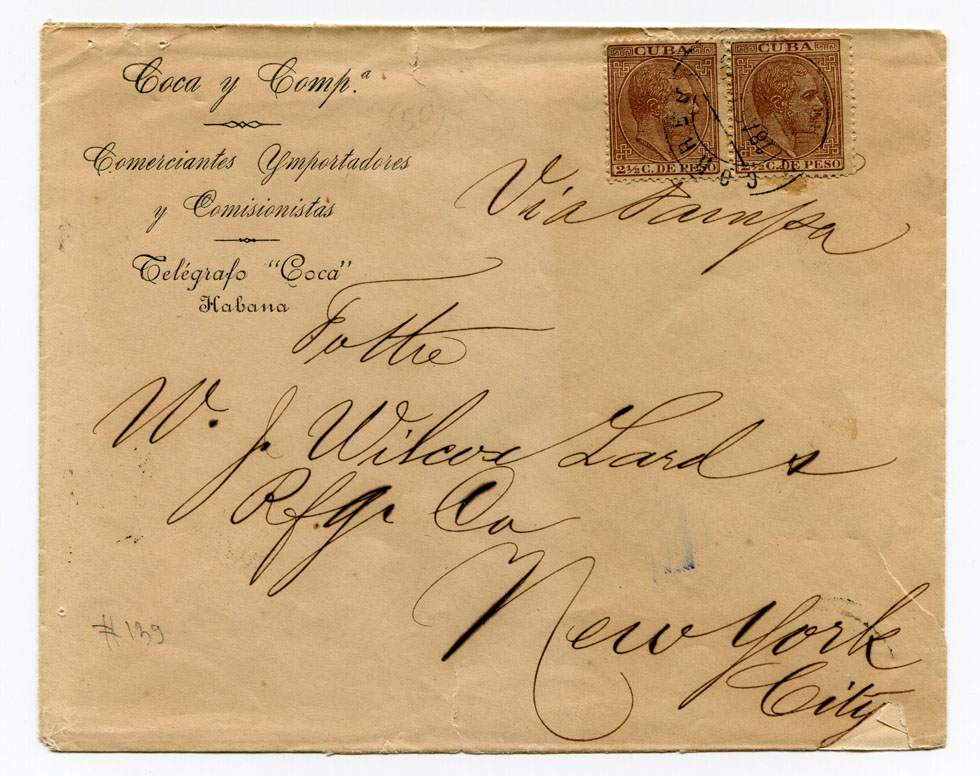 Coca y Comp.ª
Comerciantes Ymportadores
y Comisionistas
Telégrafo "Coca"
Habana
CUBA CUBA
2½ C. DE PESO 2½ C. DE PESO
Via Tampa
To the
W. J. Wilcox Lard &
Rfg. Co
New York
City
#139